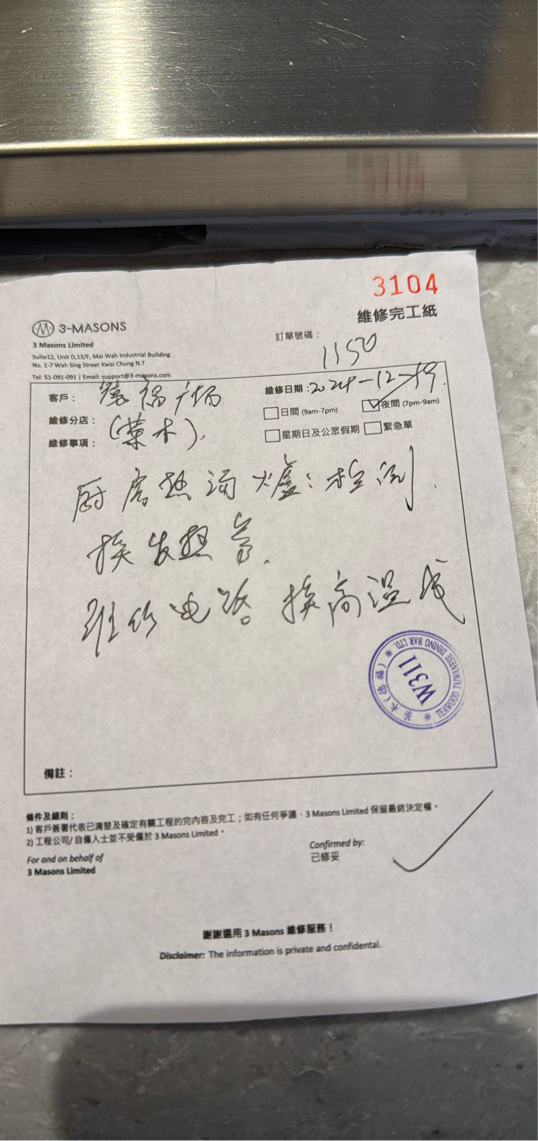 3104
維修完工紙
3-MASONS
3 Masons Limited
Suite12, Unit D,13/F, Mai Wah Industrial Building
No. 1-7 Wah Sing Street Kwai Chung N.T
Tel: 51-091-091 | Email: support@3-masons.com
訂單號碼：
1150
客戶：
福广场
維修日期：2024-12-19
維修分店：
(茶木).
日間 (9am-7pm)
夜間 (7pm-9am)
維修事項：
星期日及公眾假期
緊急單
厨房热汤爐：检测.
换发热管.
维修电路。换高温线
TAIWANESE DINING BAR LTD.
W311
茶木
備註：
條件及細則：
1) 客戶簽署代表已清楚及確定有關工程的完內容及完工；如有任何爭議，3 Masons Limited 保留最終決定權。
2) 工程公司/ 自僱人士並不受僱於 3 Masons Limited。
For and on behalf of
3 Masons Limited
Confirmed by:
已修妥
謝謝選用 3 Masons 維修服務！
Disclaimer: The information is private and confidental.